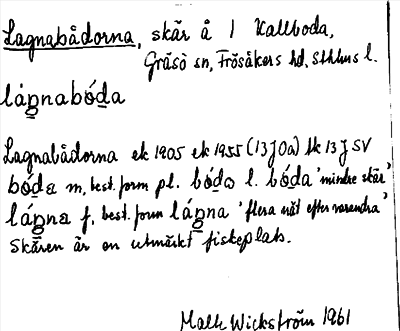 Lagnabådorna, skär å 1 Kallboda,
Gräsö sn, Frösåkers hd, Sthlms l.
lágnabóda
Lagnabådorna ek 1905 ek 1955 (13J0a) tk 13J SV
bóda m, best. form pl. bóda l. bóda 'mindre skär'
lágna f, best. form lágna 'flera nät efter varandra'
Skären är en utmärkt fiskeplats.
Malte Wickström 1961